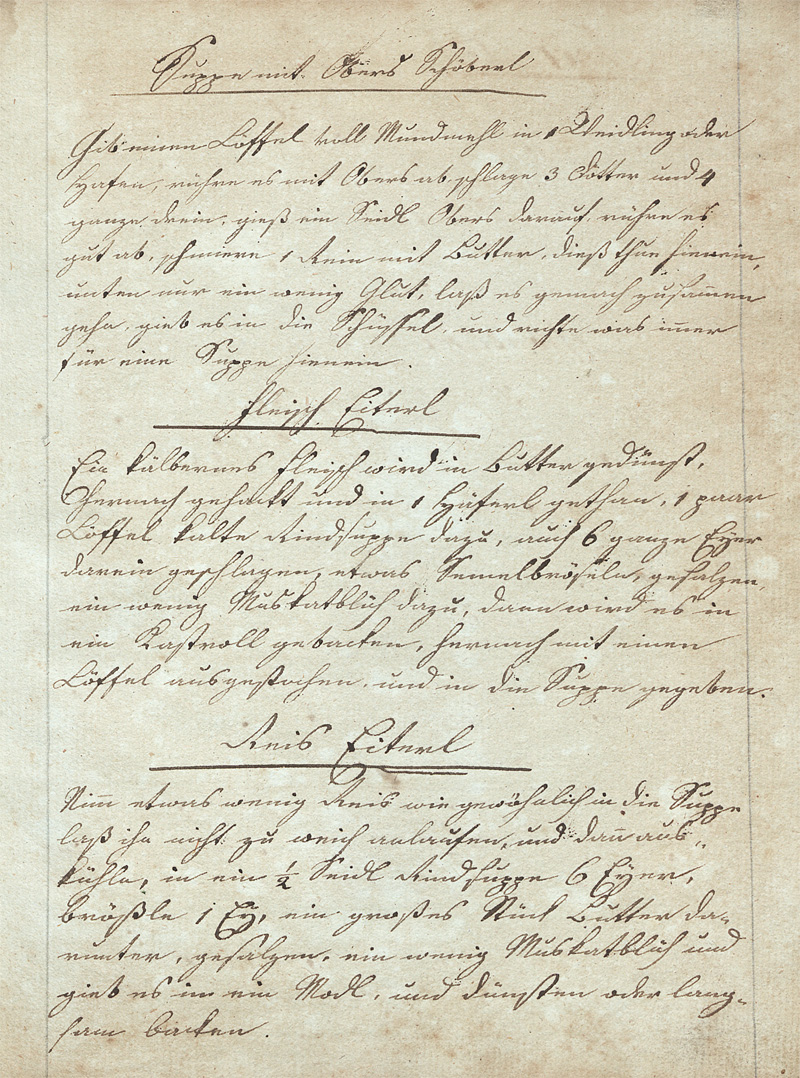 Suppe mit Obers Schöberl
Gib einen Löffel voll Mundmehl in 1 Weidling oder
Hafen, rühre es mit Obers ab, schlage 3 Dötter und 4
ganze drein, gieß ein Seidl Obers darauf, rühre es
gut ab, schmiere 1 Rein mit Butter, dieß thue hienein,
unten nur ein wenig Glut, laß es gemach zusammen
gehn, gieb es in die Schüssel, und richte was immer
für eine Suppe hienein.
Fleisch Eiterl
Ein kälbernes Fleisch wird in Butter gedünst,
hernach gehackt und in 1 Häferl gethan, 1 paar
Löffel kalte Rindsuppe dazu, auch 6 ganze Eyer
darein geschlagen, etwas Semelbröseln, gesalzen,
ein wenig Muskatblüh dazu, dann wird es in
ein Kastroll gebacken, hernach mit einen
Löffel ausgestochen, und in die Suppe gegeben.
Reis Eiterl
Nimm etwas wenig Reis wie gewöhnlich in die Suppe
laß ihn nicht zu weich anlaufen, und dann aus-
kühln, in ein ½ Seidl Rindsuppe 6 Eyer,
brößle 1 Ey, ein großes Stück Butter da-
runter, gesalzen, ein wenig Muskatblüh und
gieb es in ein Modl, und dünsten oder lang-
sam backen.